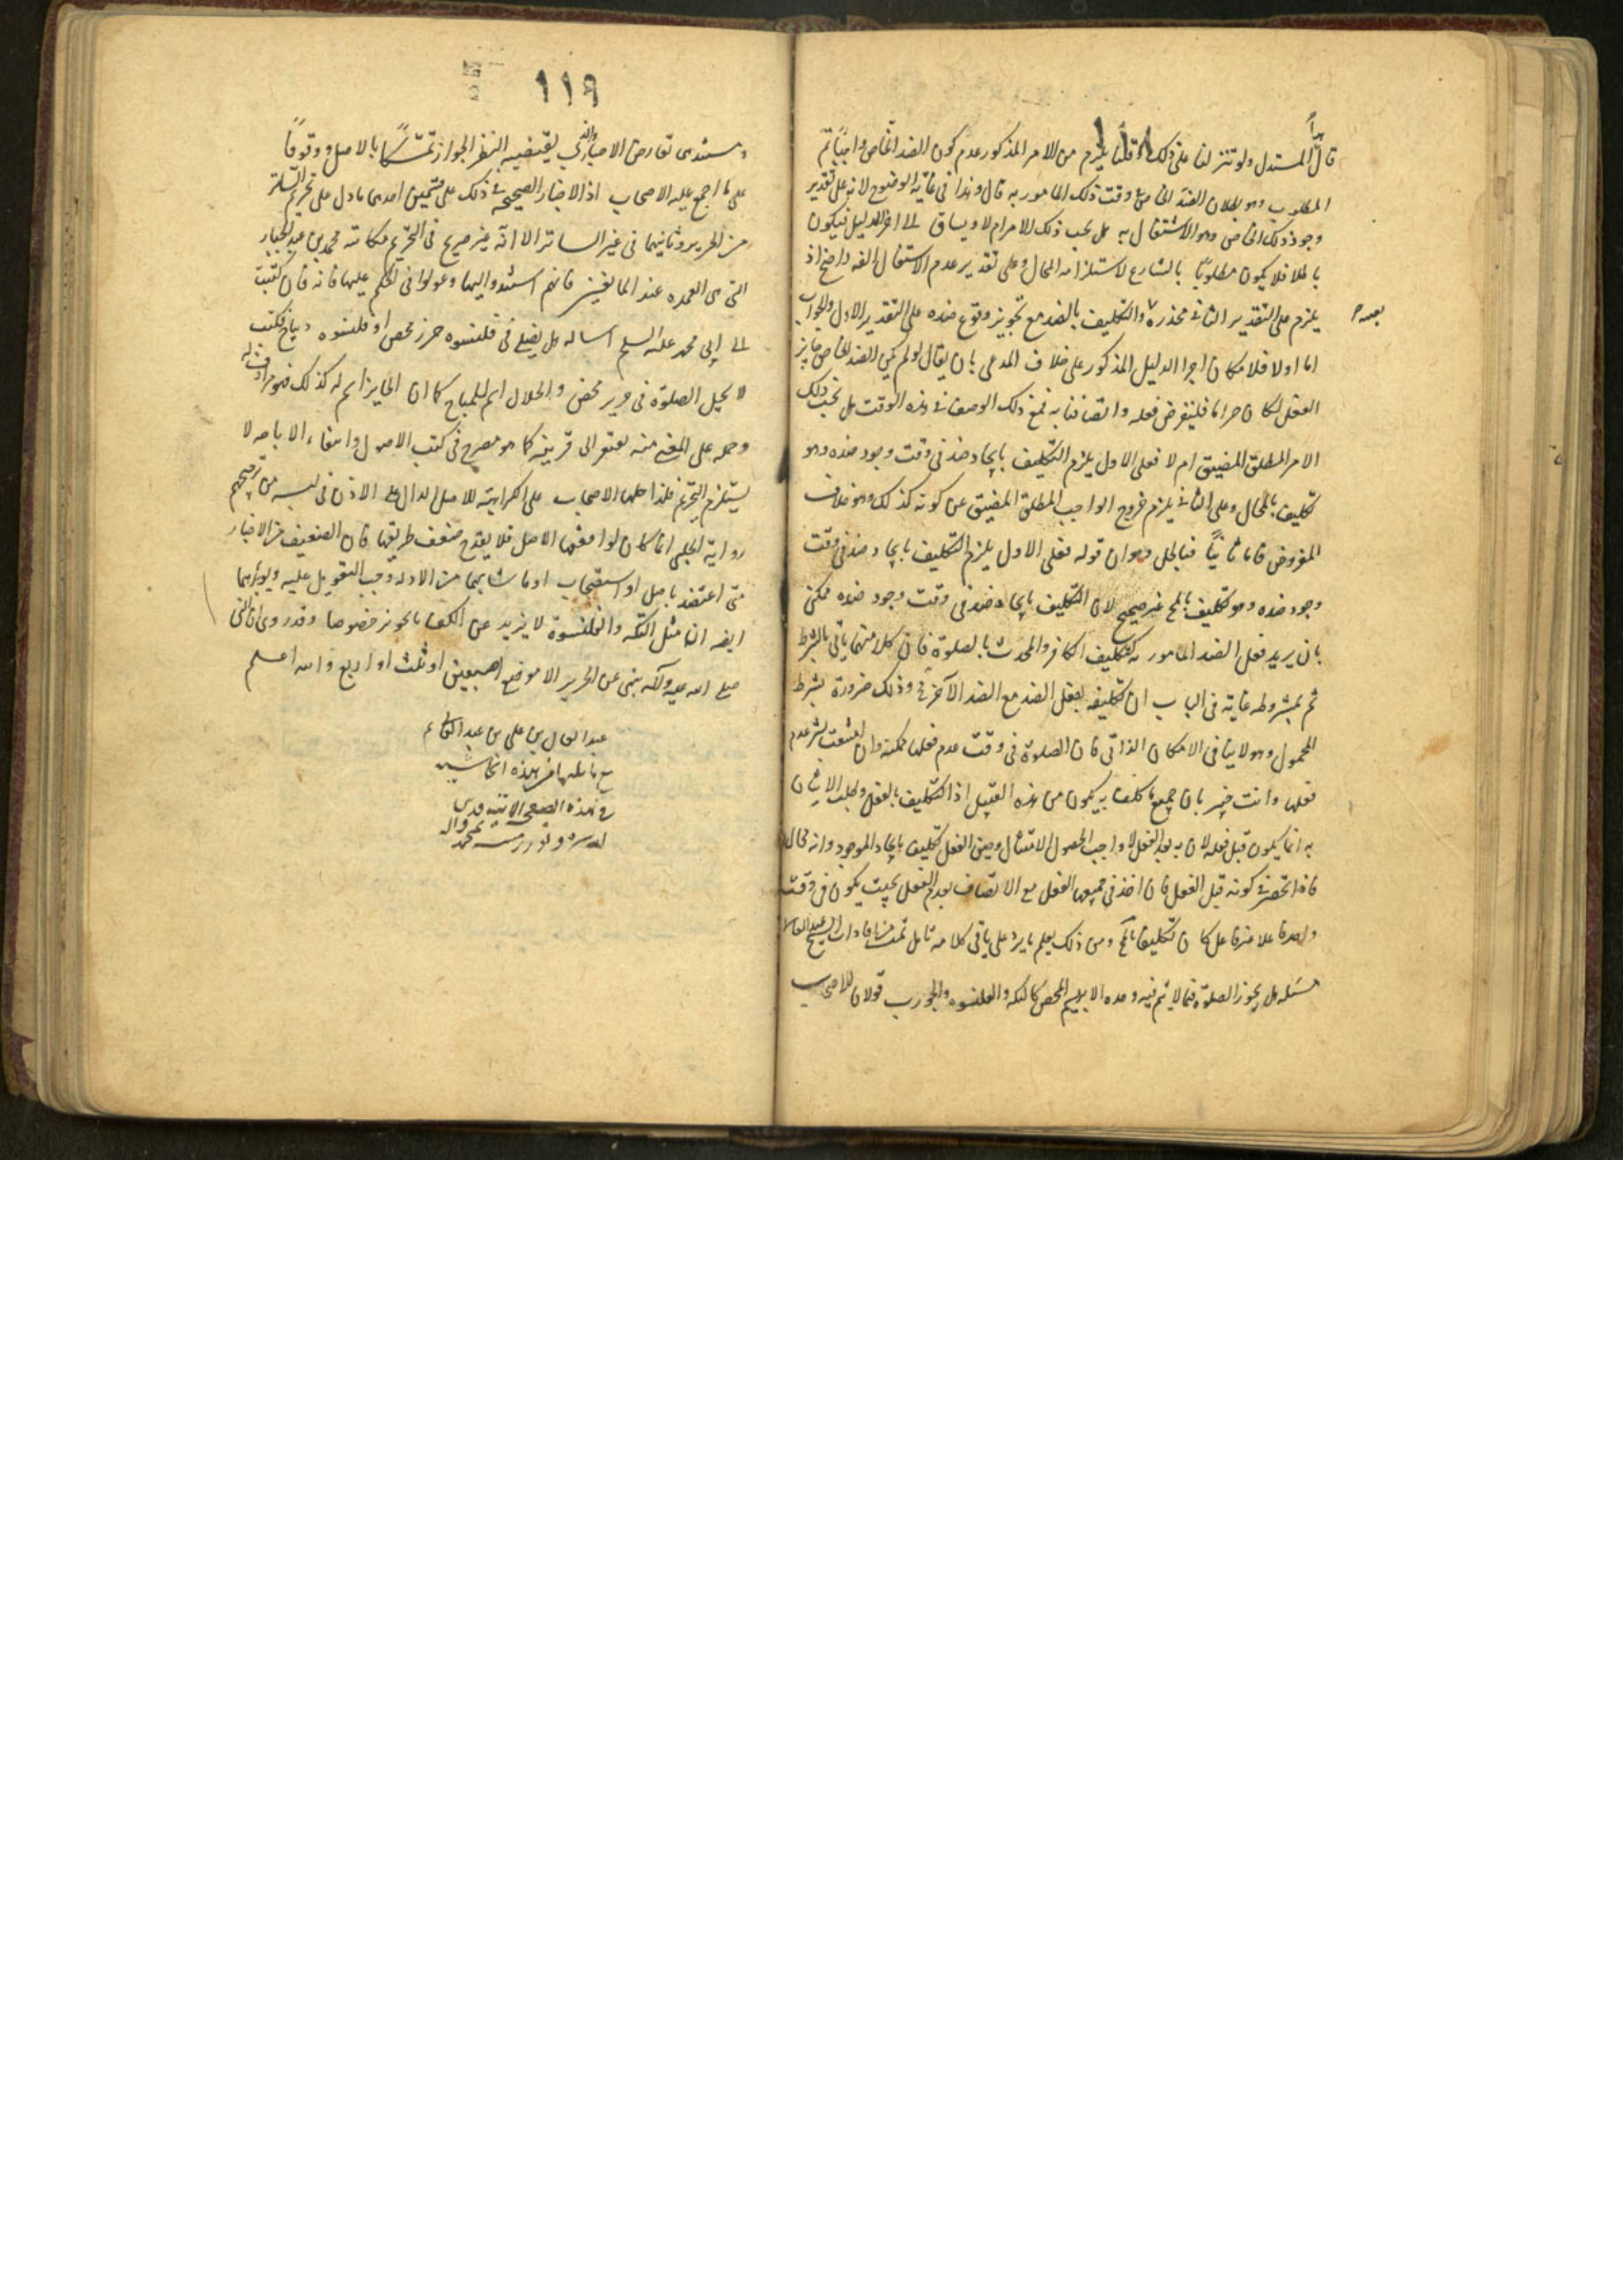 قال المستدل ولو تنزلنا على ذلك وقلنا يلزم من الامر المذكور عدم كون الضد الخاص واجبا ثم
المطلوب وهو بطلان الضد الخاص وقت ذلك المامور به قال وهذا فى غاية الوضوح لانه على تقدير
وجود ذلك الخاص وهو الاشتغال به هل يجب ذلك الامر ام لا ويساق الى اخر الدليل فيكون
باطلا فلا يكون مطلوبا بالشارع لاستلزامه المحال وعلى تقدير عدم الاشتغال الفه واضح اذ
يلزم على التقدير الثانى محذره والتكليف بالضد مع تجويز وقوع ضده على التقدير الاول والجواب
بعده
اما اولا فلامكان اجرا الدليل المذكور على خلاف المدعى بان يقال لو لم يكن الضد الخاص جايز
الفعل لكان حراما فليفرض فعله واتصافنا به فمع ذلك الوصف فى هذه الوقت هل يجب ذلك
الامر المطلق المضيق ام لا فعلى الاول يلزم التكليف بايجاد ضد فى وقت وجود ضده وهو
تكليف بالمحال وعلى الثانى يلزم خروج الواجب المطلق المضيق عن كونه كذلك وهو خلاف
المفروض فاما ثانيا فبالحل وهو ان قوله فعلى الاول يلزم التكليف بايجاد ضد فى وقت
وجود ضده وهو تكليف بالمح غير صحيح لان التكليف بايجاد ضد فى وقت وجود ضده ممكن
بان يريد فعل الضد المامور به كتكليف الكافر والمحدث بالصلوة فان كلا منهما ياتى بالشرط
ثم بمشروطه غاية فى الباب ان تكليفه بفعل الضد مع الضد الآخر فى وذلك ضرورة بشرط
المحمول وهو لا ينافى الامكان الذاتى فان الصلوة فى وقت عدم فعلها ممكنة وان امتنعت بشرط عدم
فعلها وانت خبير بان جميع ما كلف به يكون من هذه القبيل اذ التكليف بالفعل وطلب الاتيان
به انما يكون قبل فعله لان به بعد الفعل لا واجب لحصول الامتثال وحين الفعل تكليف بايجاد الموجود وانه محال
فاذا انحصر فى كونه قبل الفعل فان اخذ فى مفهومها الفعل مع الاتصاف بعدم الفعل بحيث يكون فى وقت
واحد فاعلا غير فاعل كان تكليفا بالمح ومن ذلك يعلم ما يرد على باقى كلامه تامل تمت من افادات الشيخ عبد العالى
مسئله هل يجوز الصلوة فيما لا تتم فيه وحده الابريسم المحض كالتكه والقلنسوه والجورب قولان للاصحاب
١١٩
ومستندى تعارض الاخبار والذى يقتضيه النظر الجواز تمسكا بالاصل ووقوفا
على ما اجمع عليه الاصحاب اذ الاخبار الصحيحة فى ذلك على قسمين احدهما ما دل على تحريم الساتر
من الحرير وثانيهما فى غير الساتر الا انه غير صريح فى التحريم مكاتبه محمد بن عبد الجبار
التى هى العمده عند المانعين فانهم استندوا اليها وعولوا فى الحكم عليها فانه قال كتبت
الى ابى محمد عليه السلم اساله هل يصلى فى قلنسوه حرير محض او قلنسوه ديباج فكتب
لا يحل الصلوة فى حرير محض والحلال اسم للمباح كما ان الجايز اسم له كذلك فهو مرادف له
وحمله على المعنى منه يفتقر الى قرينة كما هو مصرح فى كتب الاصول وانتفاء الاباحه لا
يستلزم التحريم فلذا حملها الاصحاب على الكراهية للاصل الدال على الاذن فى لبسه من ترجيحهم
رواية الحلبى انما كان لموافقها الاصل فلا يقدح ضعف طريقها فان الضعيف من الاخبار
متى اعتضد باصل او استصحاب او ما شابهما من الادله وجب التعويل عليه ويؤيدهما
ايضه ان مثل التكه والقلنسوة لا يزيد عن الكف بالحرير خصوصا وقد روى ان النبى
صلى الله عليه وآله نهى عن الحرير الا موضع اصبعين او ثلث او اربع والله اعلم
عبد العالى بن على بن عبد العالى
هذه الحاشيه
فى هذه الصفحه
الله سره ونور رمسه بمحمد واله